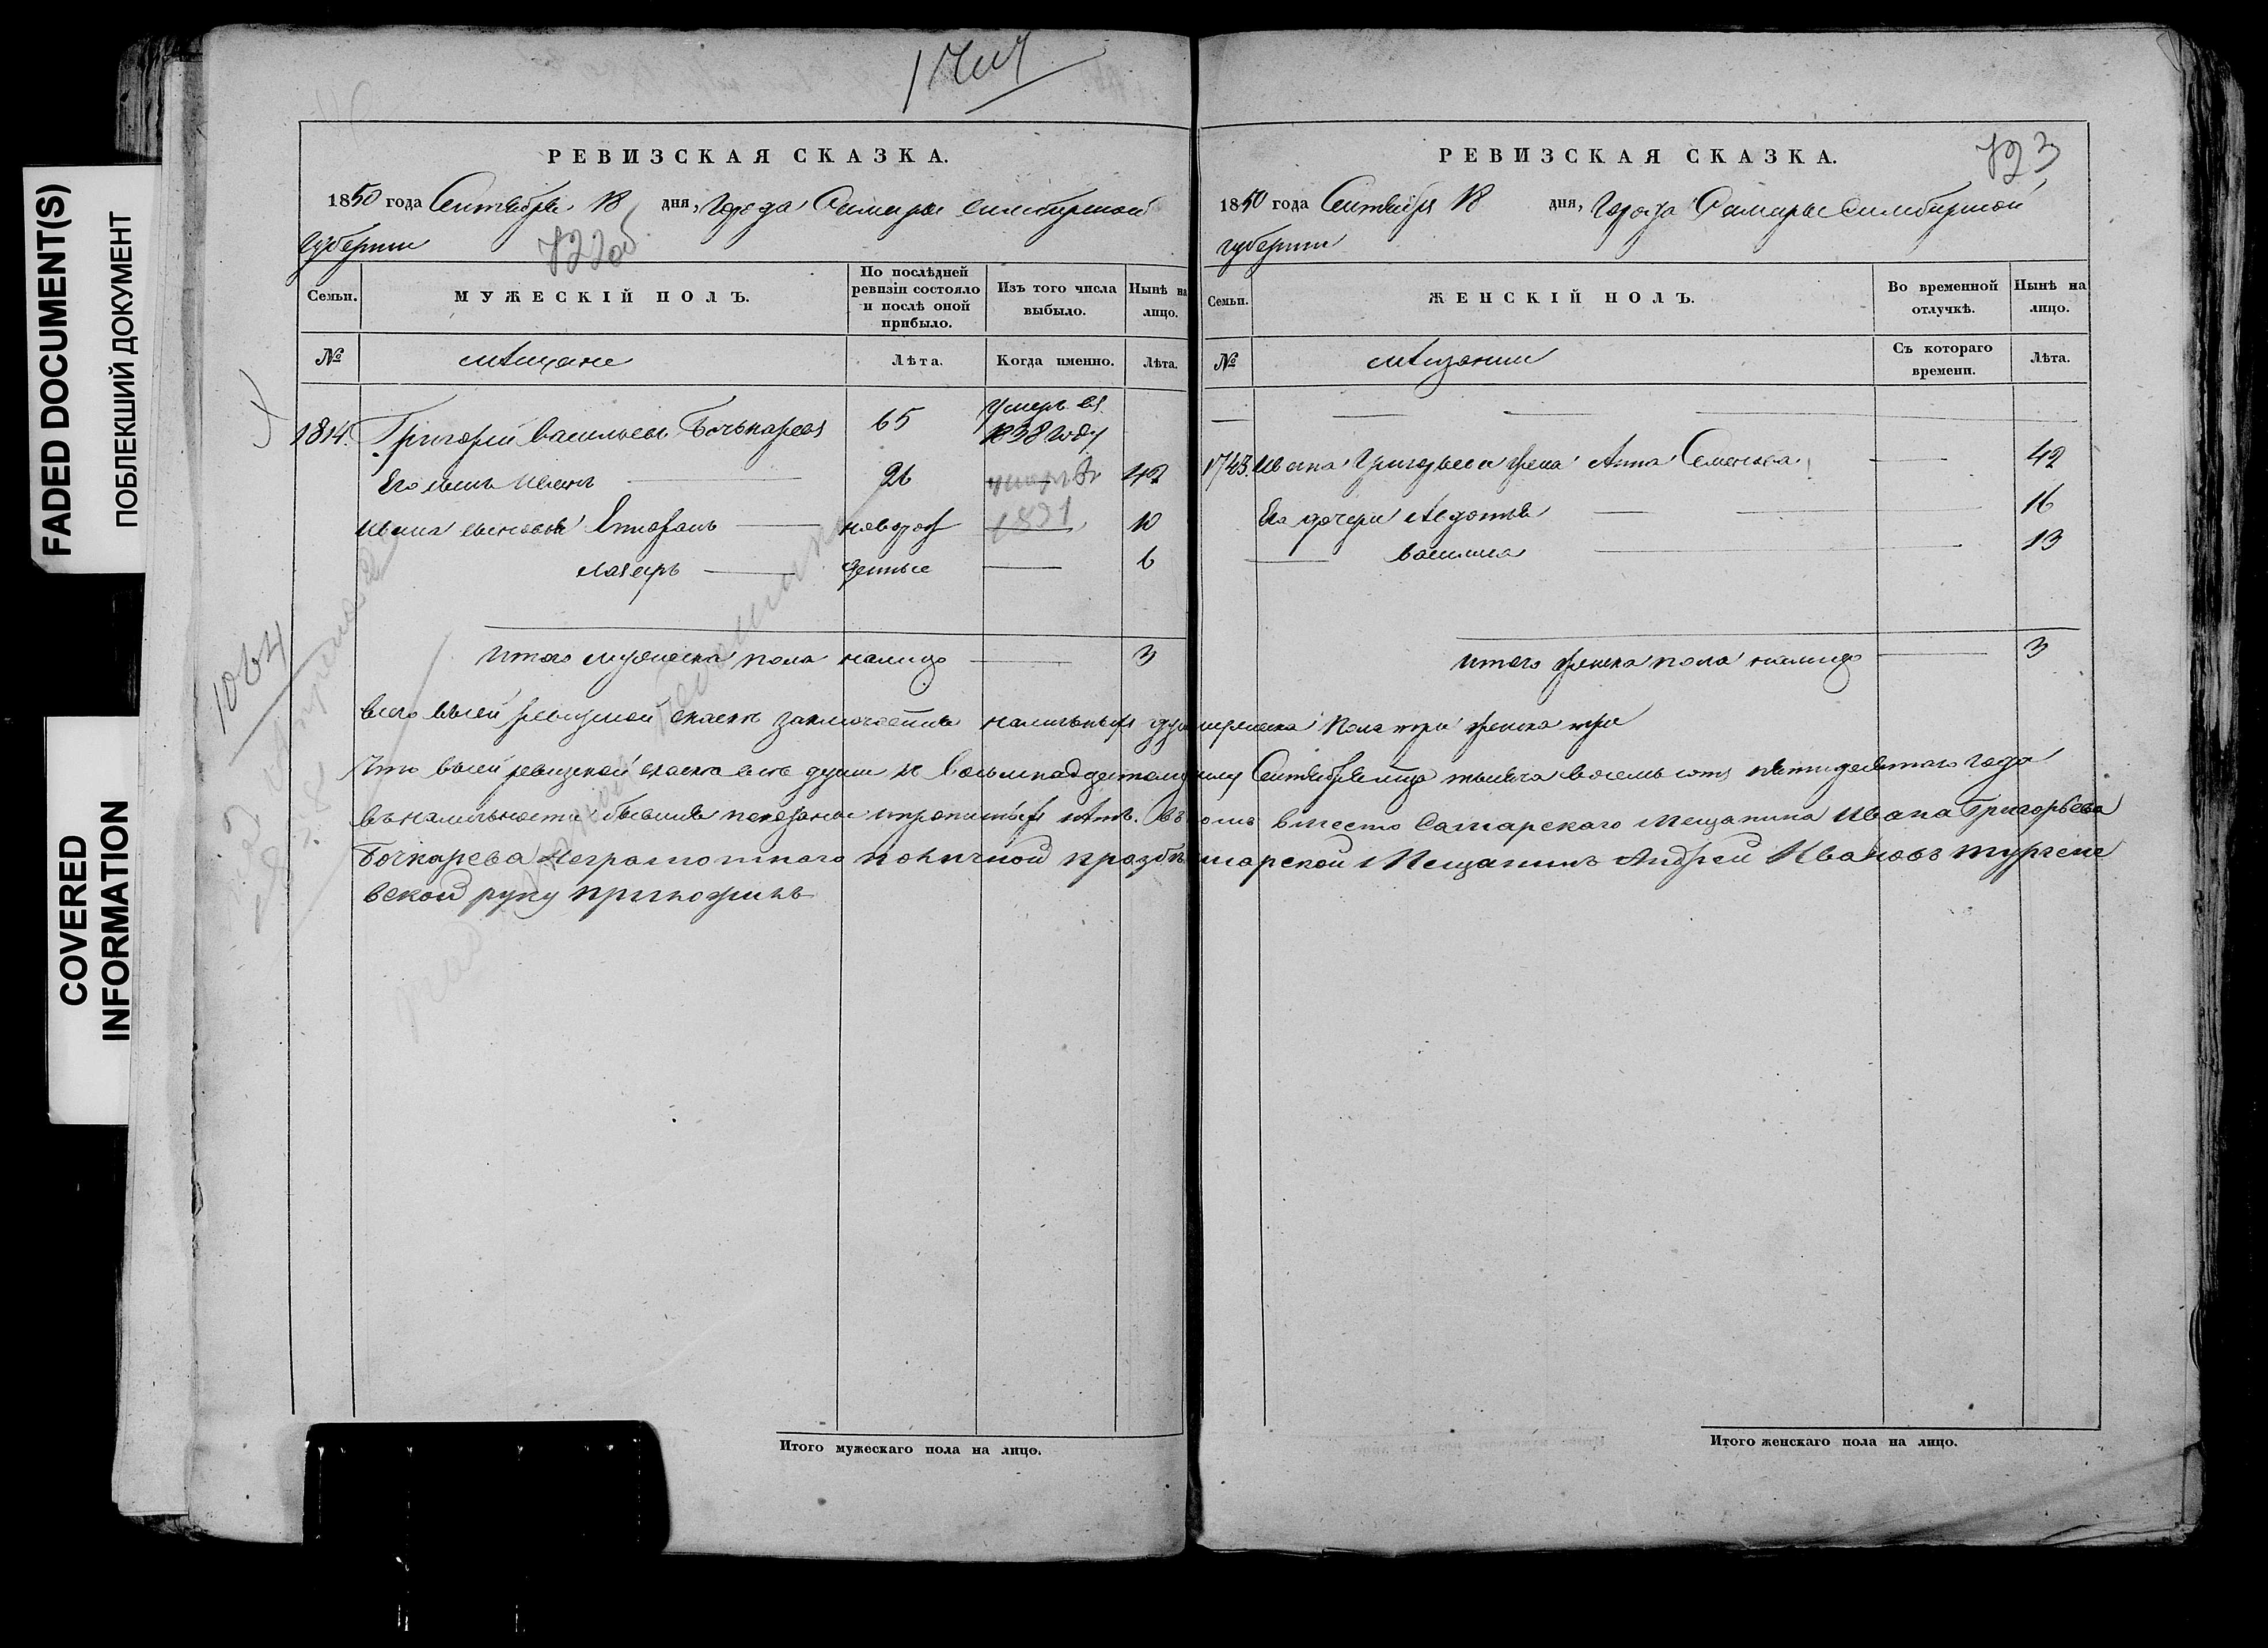 FADED DOCUMENT(S)
ПОБЛЕКШИЙ ДОКУМЕНТ
COVERED
INFORMATION
РЕВИЗСКАЯ СКАЗКА.
1850 года Сентября 18 дня, Города Самары Симбирской
губернии
722об
Семьи.
МУЖЕСКІЙ ПОЛЪ.
По послѣдней ревизіи состояло и послѣ оной прибыло.
Изъ того числа выбыло.
Нынѣ на лицо.
№
Мещане
Лѣта.
Когда именно.
Лѣта.
1814. Григорій Васильевъ Бочькаревъ 65 умеръ въ 1838 году
Его сынъ Иванъ 26 умеръ въ 42
Ивана сыновья новорож 1851 10
Лазарь денные 6
Итого мужеска пола налицо 3
1064
РЕВИЗСКАЯ СКАЗКА.
723
1850 года Сентября 18 дня, Города Самары Симбирской
губернии
Семьи.
ЖЕНСКІЙ ПОЛЪ.
Во временной отлучкѣ.
Нынѣ на лицо.
№
Мещанки
Съ котораго времени.
Лѣта.
1743. Ивана Григорьева жена Анна Семенова 42
Его дочери Авдотья 16
Васильса 13
Итого женска пола налицо 3
всего въ сей ревизской сказке заключается наличныхъ душъ мужеска пола три женска три
Что въ сей ревизской сказке все души къ восьмнадцатому числу Сентября м-ца тысяча восемь сотъ пятидесятого года
въ наличности бывшие показаны и пропитыхъ нетъ. Въ томъ вместо Самарскаго мещанина Ивана Григорьева
Бочкарева неграмотнаго по личной прозбе Самарской мещанинъ Андрей Ивановъ тургене
вской руку приложилъ
Итого мужескаго пола на лицо.
Итого женскаго пола на лицо.